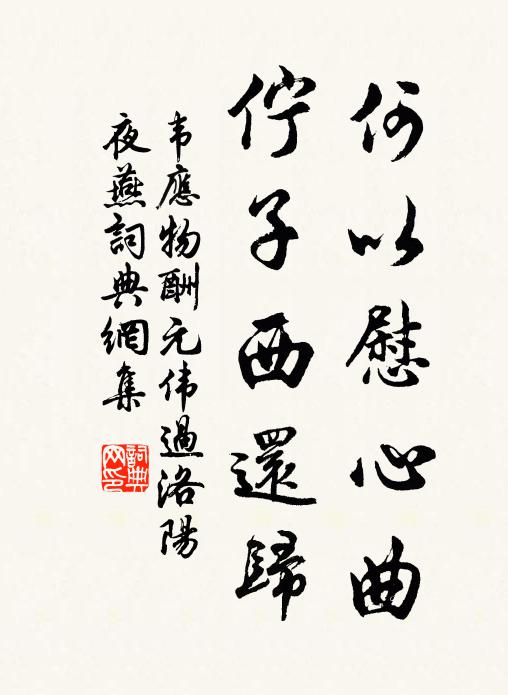 何以慰心曲
佇子西還歸
韦應物酬元伟過洛陽
夜燕詞典網集
詞典
网印